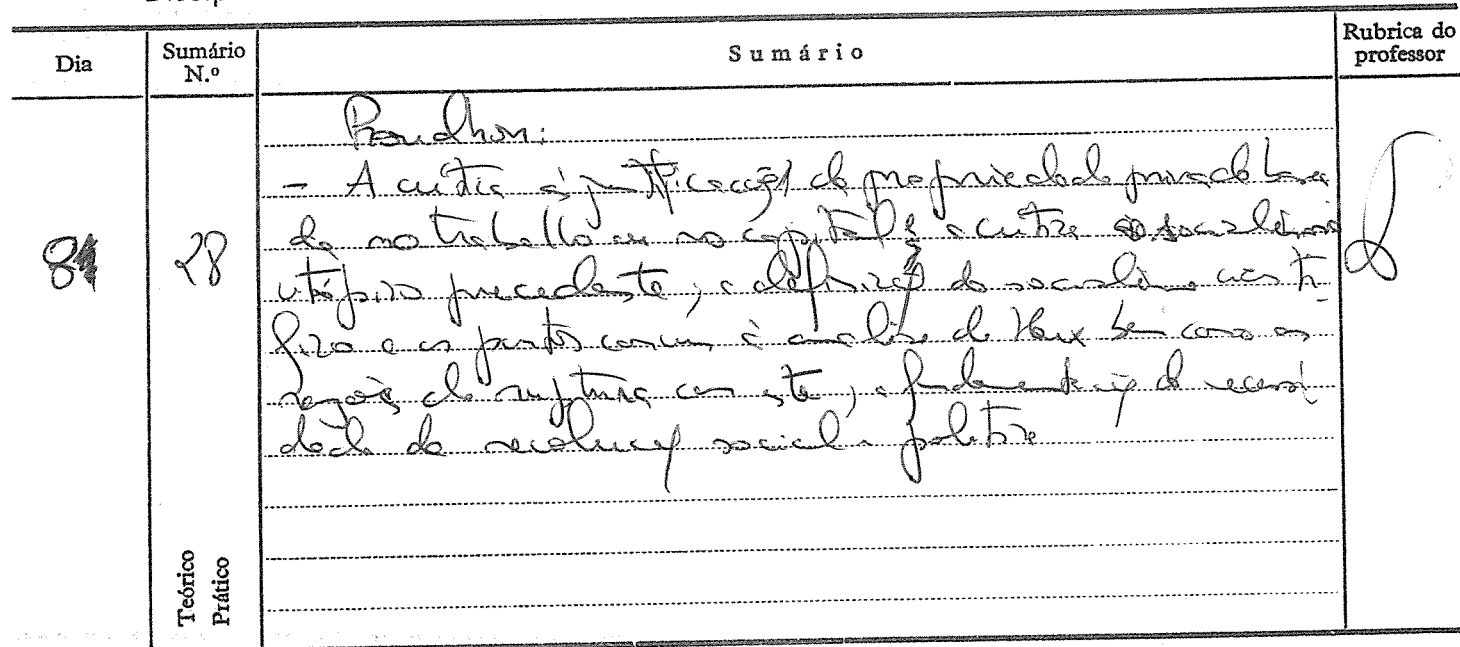 Dia
Sumário
N.º
Sumário
Rubrica do
professor
8
28
Proudhon:
- A crítica à justificação da propriedade privada basea
da no trabalho ou no capital; a crítica ao socialismo
utópico precedente; a definição do socialismo cientí-
fico e os pontos comuns à análise de Marx bem como as
razões da ruptura com este; a fundamentação da necessi
dade da revolução social e política
Teórico
Prático